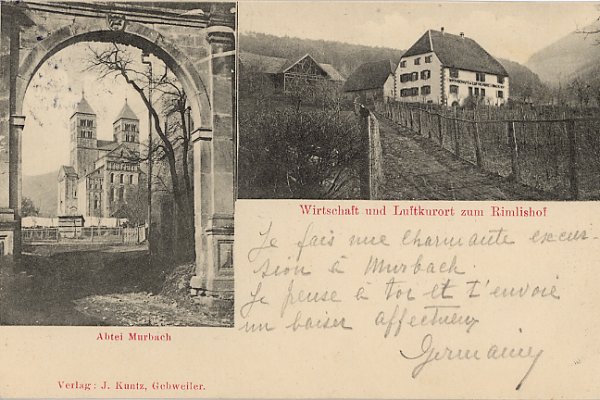 Wirtschaft und Luftkurort zum Rimlishof
Je fais une charmante excur-
sion à Murbach.
Je pense à toi et t'envoie
un baiser affectueux
Germaine
Abtei Murbach
Verlag: J. Kuntz, Gebweiler.